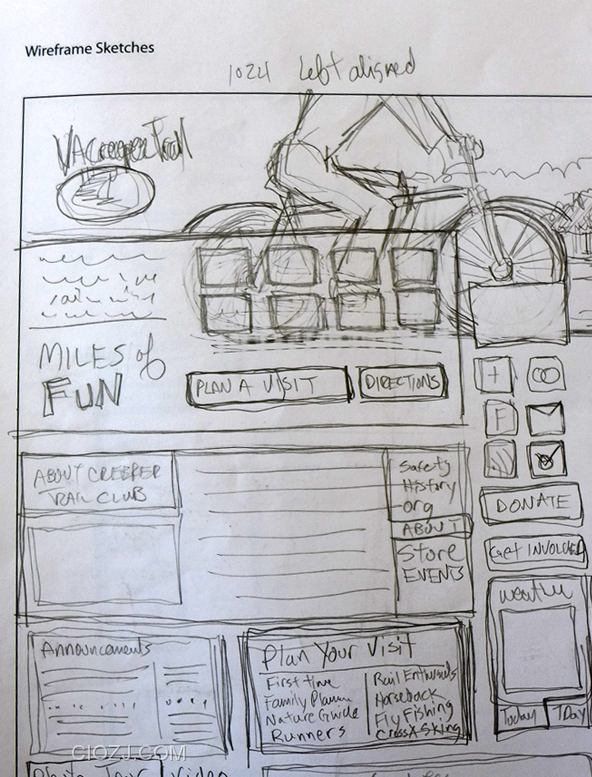 Wireframe Sketches
1024 Left aligned
VACreeperTrail
MILES of
FUN
PLAN A VISIT
DIRECTIONS
+
F
ABOUT CREEPER
TRAIL CLUB
Safety
History
org
ABOUT
Store
EVENTS
DONATE
Get INVOLVED
weather
Today
7Day
Announcements
Plan Your Visit
First time
Family
Nature Guide
Runners
Rail Enthusiasts
Horseback
Fly Fishing
Cross X-Skiing
Tour
Video
CIOZJ.COM